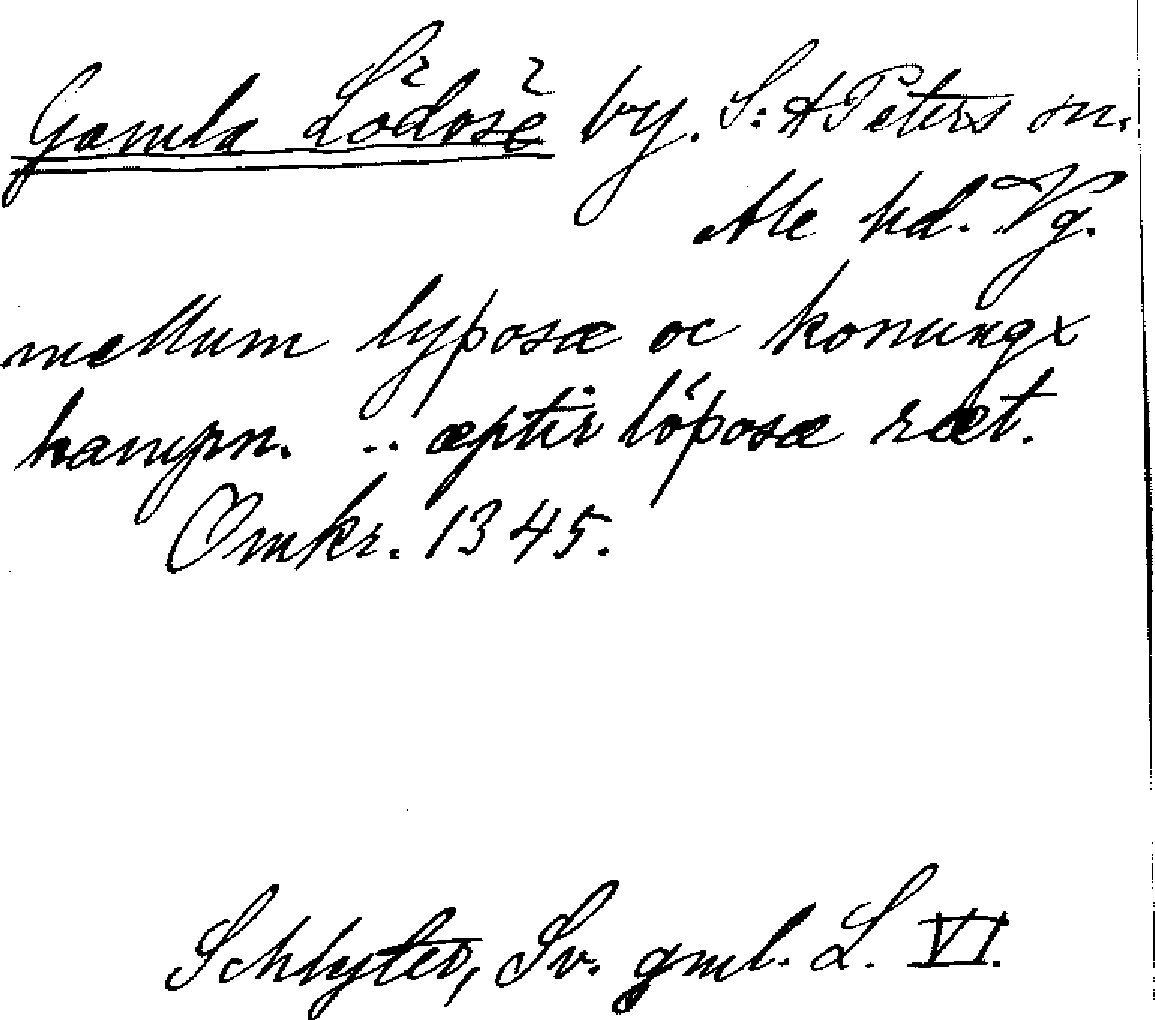 Gamla Lödöse by. S:t Peters sn.
Ale hd. Vg.
mællum lyþosæ oc konungx
hampn. .. æptir löþosæ ræt.
Omkr. 1345.
Schlyter, Sv. gml. L. VI.